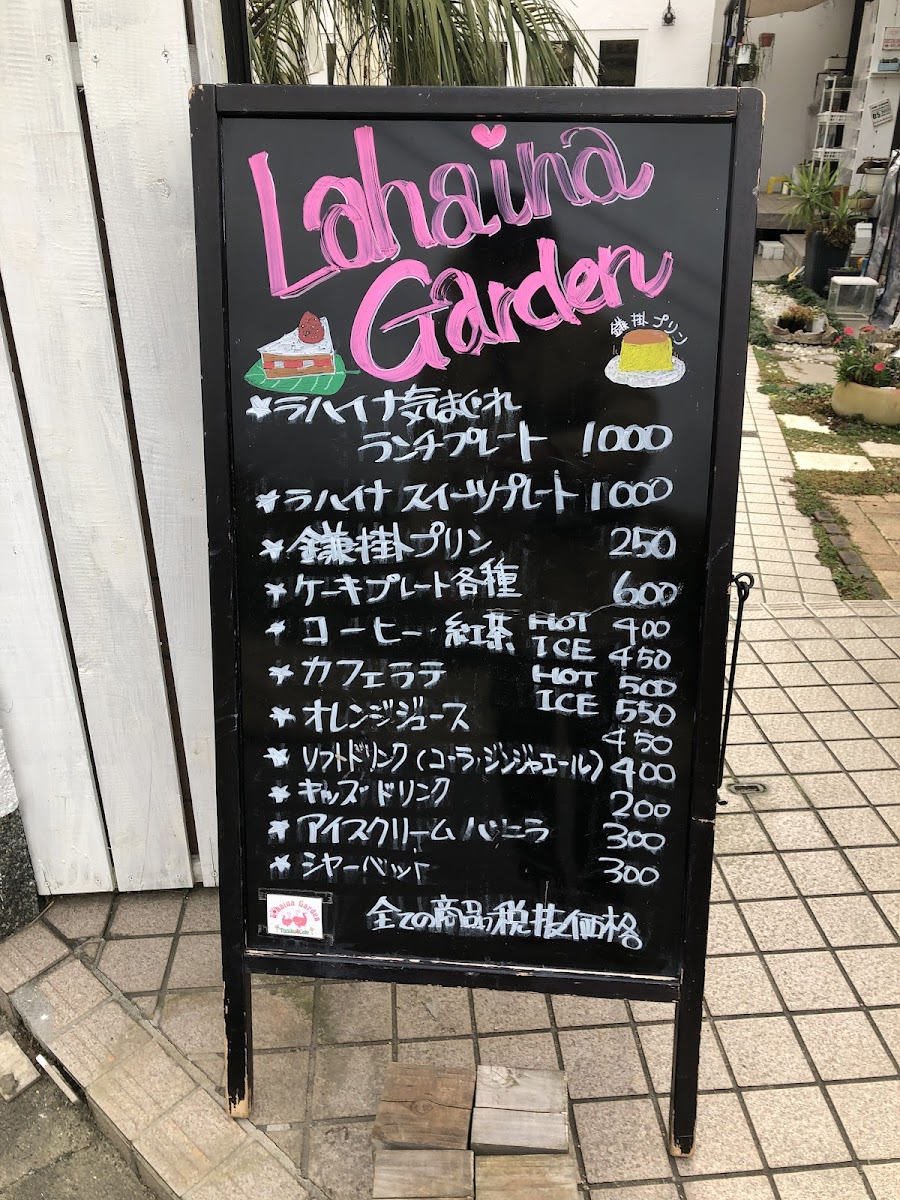 Lahaina
Garden
鎌掛プリン
★ラハイナ気まぐれ
ランチプレート 1000
★ラハイナ スイーツプレート 1000
★鎌掛プリン 250
★ケーキプレート各種 600
★コーヒー・紅茶 HOT 400
ICE 450
★カフェラテ HOT 500
ICE 550
★オレンジジュース 450
★ソフトドリンク(コーラ・ジンジャエール) 400
★キッズ・ドリンク 200
★アイスクリーム バニラ 300
★シャーベット 300
全ての商品税抜価格
Lahaina Garden